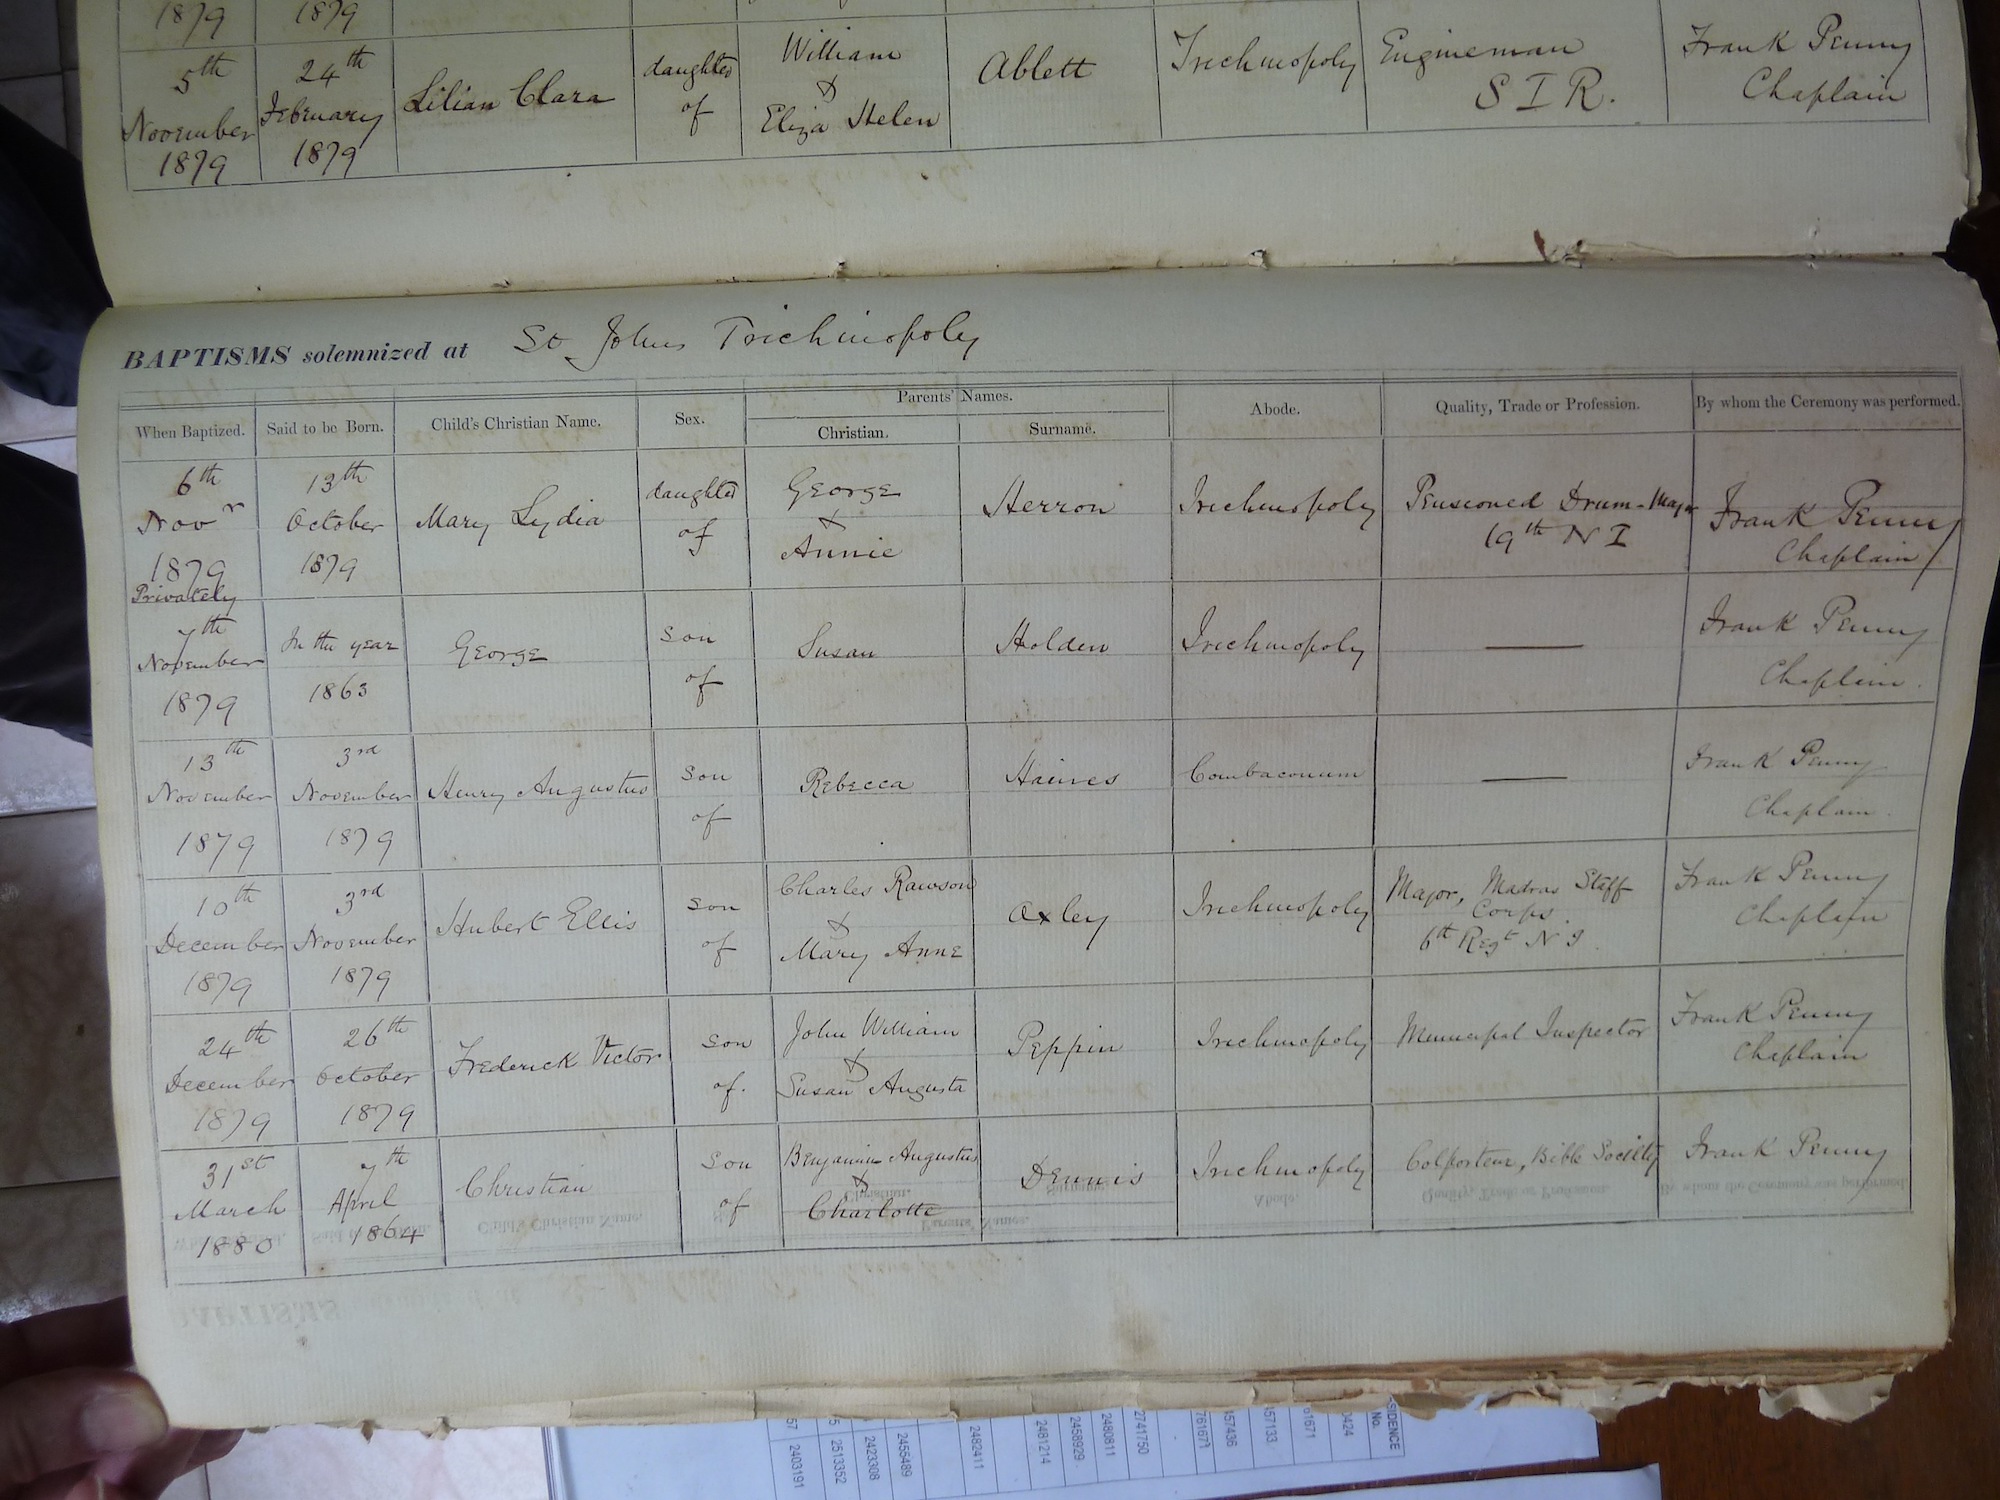 1879 1879
5th November 1879 24th February 1879 Lilian Clara daughter of William & Eliza Helen Ablett Trichinopoly Engineman S I R. Frank Penny Chaplain
BAPTISMS solemnized at St Johns Trichinopoly
When Baptized. Said to be Born. Child's Christian Name. Sex. Parents' Names. Christian. Surname. Abode. Quality, Trade or Profession. By whom the Ceremony was performed.
6th Novr 1879 13th October 1879 Mary Lydia daughter of George & Annie Herron Trichinopoly Pensioned Drum-Major 19th N I Frank Penny Chaplain
Privately 7th November 1879 In the year 1863 George son of Susan Holden Trichinopoly — Frank Penny Chaplain.
13th November 1879 3rd November 1879 Henry Augustus son of Rebecca Haines Combaconum — Frank Penny Chaplain.
10th December 1879 3rd November 1879 Hubert Ellis son of Charles Rawson & Mary Anne Oxley Trichinopoly Major, Madras Staff Corps. 6th Regt N I. Frank Penny Chaplain
24th December 1879 26th October 1879 Frederick Victor son of. John William & Susan Augusta Peppin Trichinopoly Municipal Inspector Frank Penny Chaplain
31st March 1880 7th April 1864 Christian son of Benjamin Augustus & Charlotte Dennis Trichinopoly Colporteur, Bible Society Frank Penny
SIDENCE No.
0424
61671
457133
457436
761671
2741750
2480811
2458929
2481214
2482411
2455489
2423308
2513352
2403191